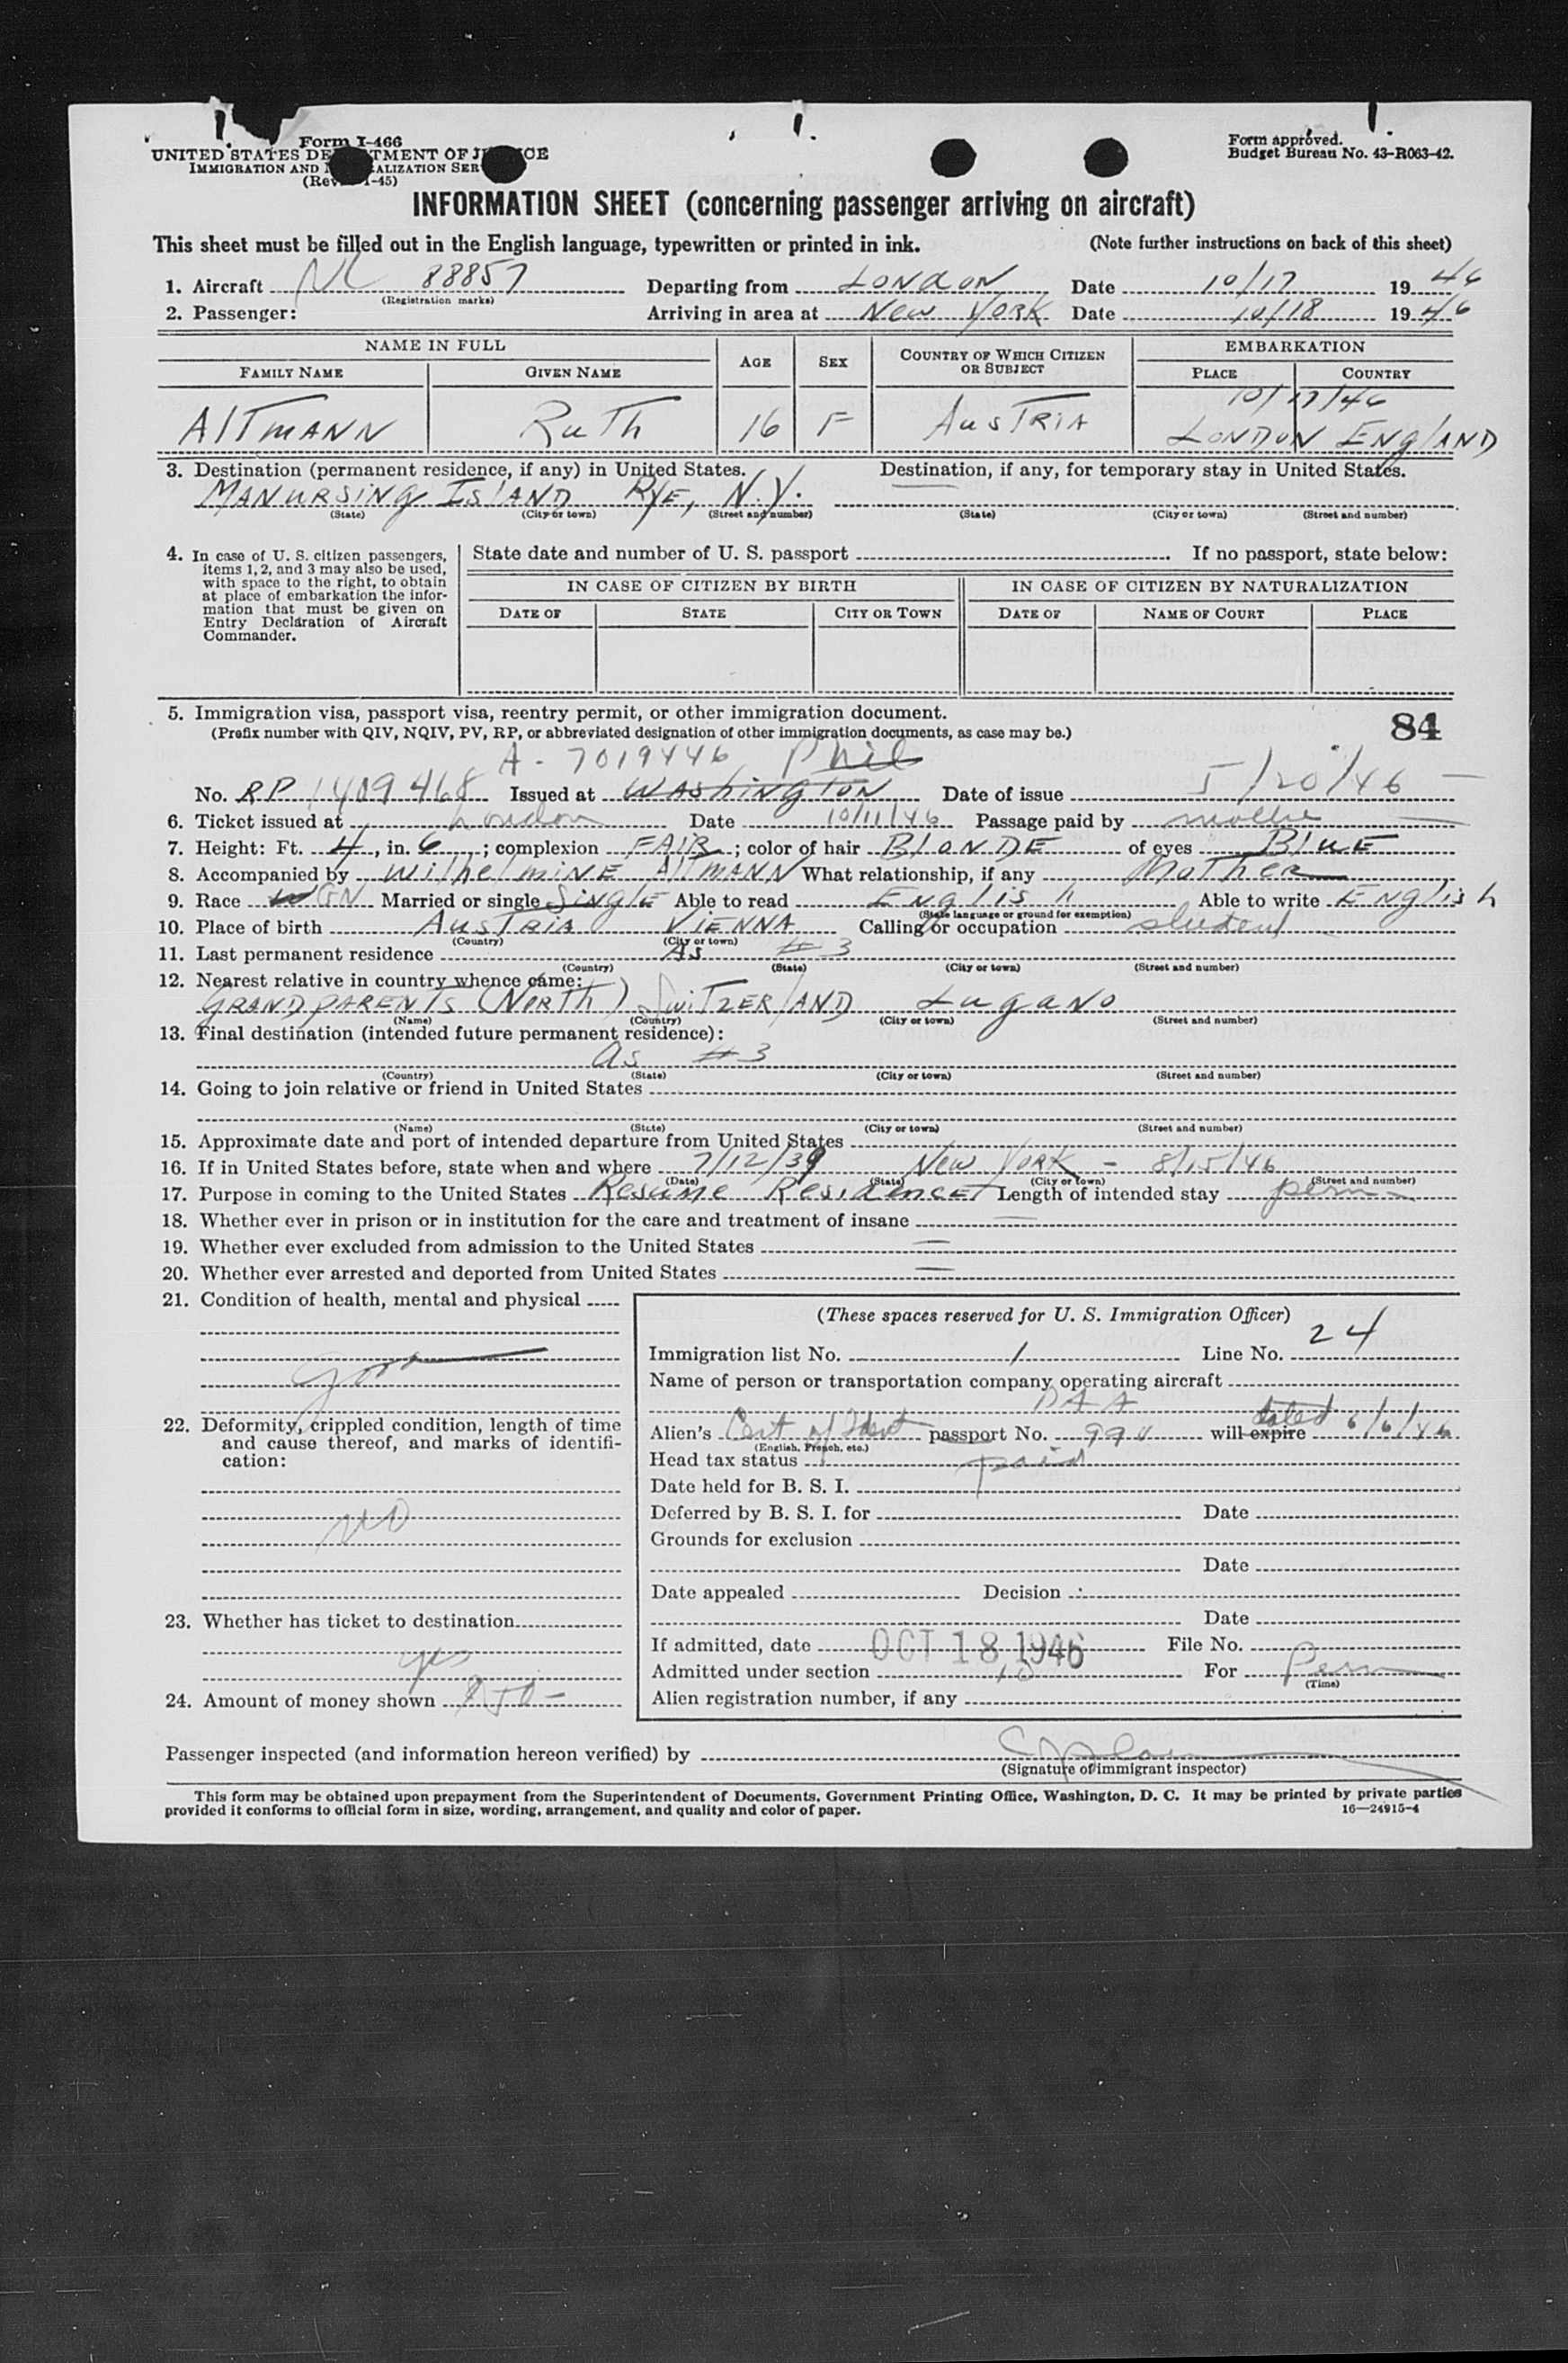 Form I-466
UNITED STATES DE TMENT OF J CE
IMMIGRATION AND ALIZATION SER
(Rev. 1-45)
Form approved.
Budget Bureau No. 43-R063-42.
INFORMATION SHEET (concerning passenger arriving on aircraft)
This sheet must be filled out in the English language, typewritten or printed in ink. (Note further instructions on back of this sheet)
1. Aircraft NC 88857 Departing from LONDON Date 10/17 1946
(Registration marks)
2. Passenger: Arriving in area at New YORK Date 10/18 1946
NAME IN FULL AGE SEX COUNTRY OF WHICH CITIZEN OR SUBJECT EMBARKATION
FAMILY NAME GIVEN NAME PLACE COUNTRY
10/17/46
AlTmANN RuTh 16 F AusTRiA LONDON ENglAND
3. Destination (permanent residence, if any) in United States. Destination, if any, for temporary stay in United States.
MANURSiNg IslAND RyE, N.Y.
(State) (City or town) (Street and number) (State) (City or town) (Street and number)
4. In case of U. S. citizen passengers, items 1, 2, and 3 may also be used, with space to the right, to obtain at place of embarkation the information that must be given on Entry Declaration of Aircraft Commander.
State date and number of U. S. passport . If no passport, state below:
IN CASE OF CITIZEN BY BIRTH IN CASE OF CITIZEN BY NATURALIZATION
DATE OF STATE CITY OR TOWN DATE OF NAME OF COURT PLACE
5. Immigration visa, passport visa, reentry permit, or other immigration document.
(Prefix number with QIV, NQIV, PV, RP, or abbreviated designation of other immigration documents, as case may be.)
84
A- 7019446 Phil
No. RP 1409468 Issued at WAShiNgTON Date of issue 5/20/46
6. Ticket issued at London Date 10/11/46 Passage paid by mother
7. Height: Ft. 4, in. 6; complexion FAIR; color of hair BlONDE of eyes BluE
8. Accompanied by WilhelmiNE AlTmANN What relationship, if any MoTher
9. Race GN Married or single SiNglE Able to read ENglish Able to write ENglish
(State language or ground for exemption)
10. Place of birth AusTRiA ViENNA Calling or occupation student
(Country) (City or town)
11. Last permanent residence As #3
(Country) (State) (City or town) (Street and number)
12. Nearest relative in country whence came:
GRANDpARENTs (NoRTh) SwiTZERlAND LugaNo
(Name) (Country) (City or town) (Street and number)
13. Final destination (intended future permanent residence):
As #3
(Country) (State) (City or town) (Street and number)
14. Going to join relative or friend in United States
(Name) (State) (City or town) (Street and number)
15. Approximate date and port of intended departure from United States
16. If in United States before, state when and where 7/12/39 New YORK - 8/15/46
(Date) (State) (City or town) (Street and number)
17. Purpose in coming to the United States Resume Residence Length of intended stay perm
18. Whether ever in prison or in institution for the care and treatment of insane —
19. Whether ever excluded from admission to the United States —
20. Whether ever arrested and deported from United States —
21. Condition of health, mental and physical
good
22. Deformity, crippled condition, length of time and cause thereof, and marks of identification:
no
23. Whether has ticket to destination
yes
24. Amount of money shown
(These spaces reserved for U. S. Immigration Officer)
Immigration list No. 1 Line No. 24
Name of person or transportation company operating aircraft
PAA
Alien's Cert of Ident passport No. will expire dated 6/6/46
(English, French, etc.)
Head tax status paid
Date held for B. S. I.
Deferred by B. S. I. for Date
Grounds for exclusion
Date
Date appealed Decision
Date
If admitted, date OCT 18 1946 File No.
Admitted under section For Perm
(Time)
Alien registration number, if any
Passenger inspected (and information hereon verified) by
(Signature of immigrant inspector)
This form may be obtained upon prepayment from the Superintendent of Documents, Government Printing Office, Washington, D. C. It may be printed by private parties
provided it conforms to official form in size, wording, arrangement, and quality and color of paper. 16—24915-4